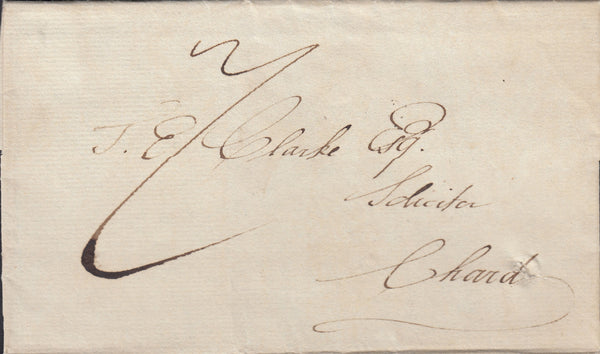 T. E. Clarke Esq.
Solicitor
Chard